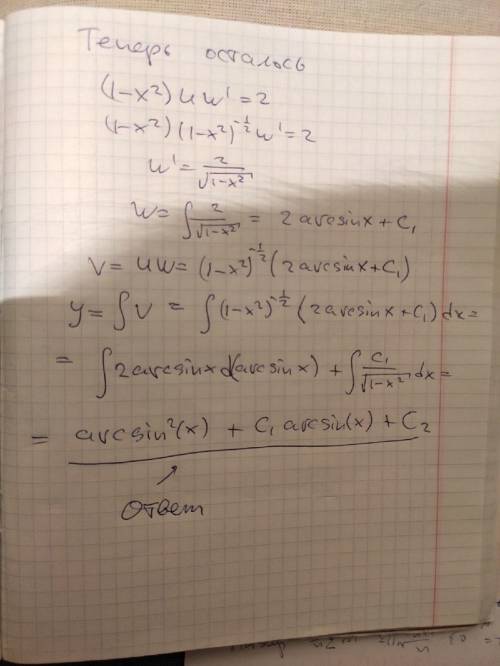 Теперь осталось
(1-x²) u w' = 2
(1-x²) (1-x²)^{-1/2} w' = 2
w' = 2/√(1-x²)
w = ∫ 2/√(1-x²) = 2 arcsin x + C₁
V = uw = (1-x²)^{-1/2} (2 arcsin x + C₁)
y = ∫ V = ∫ (1-x²)^{-1/2} (2 arcsin x + C₁) dx =
= ∫ 2 arcsin x d(arcsin x) + ∫ C₁/√(1-x²) dx =
= arcsin²(x) + C₁ arcsin(x) + C₂
Ответ